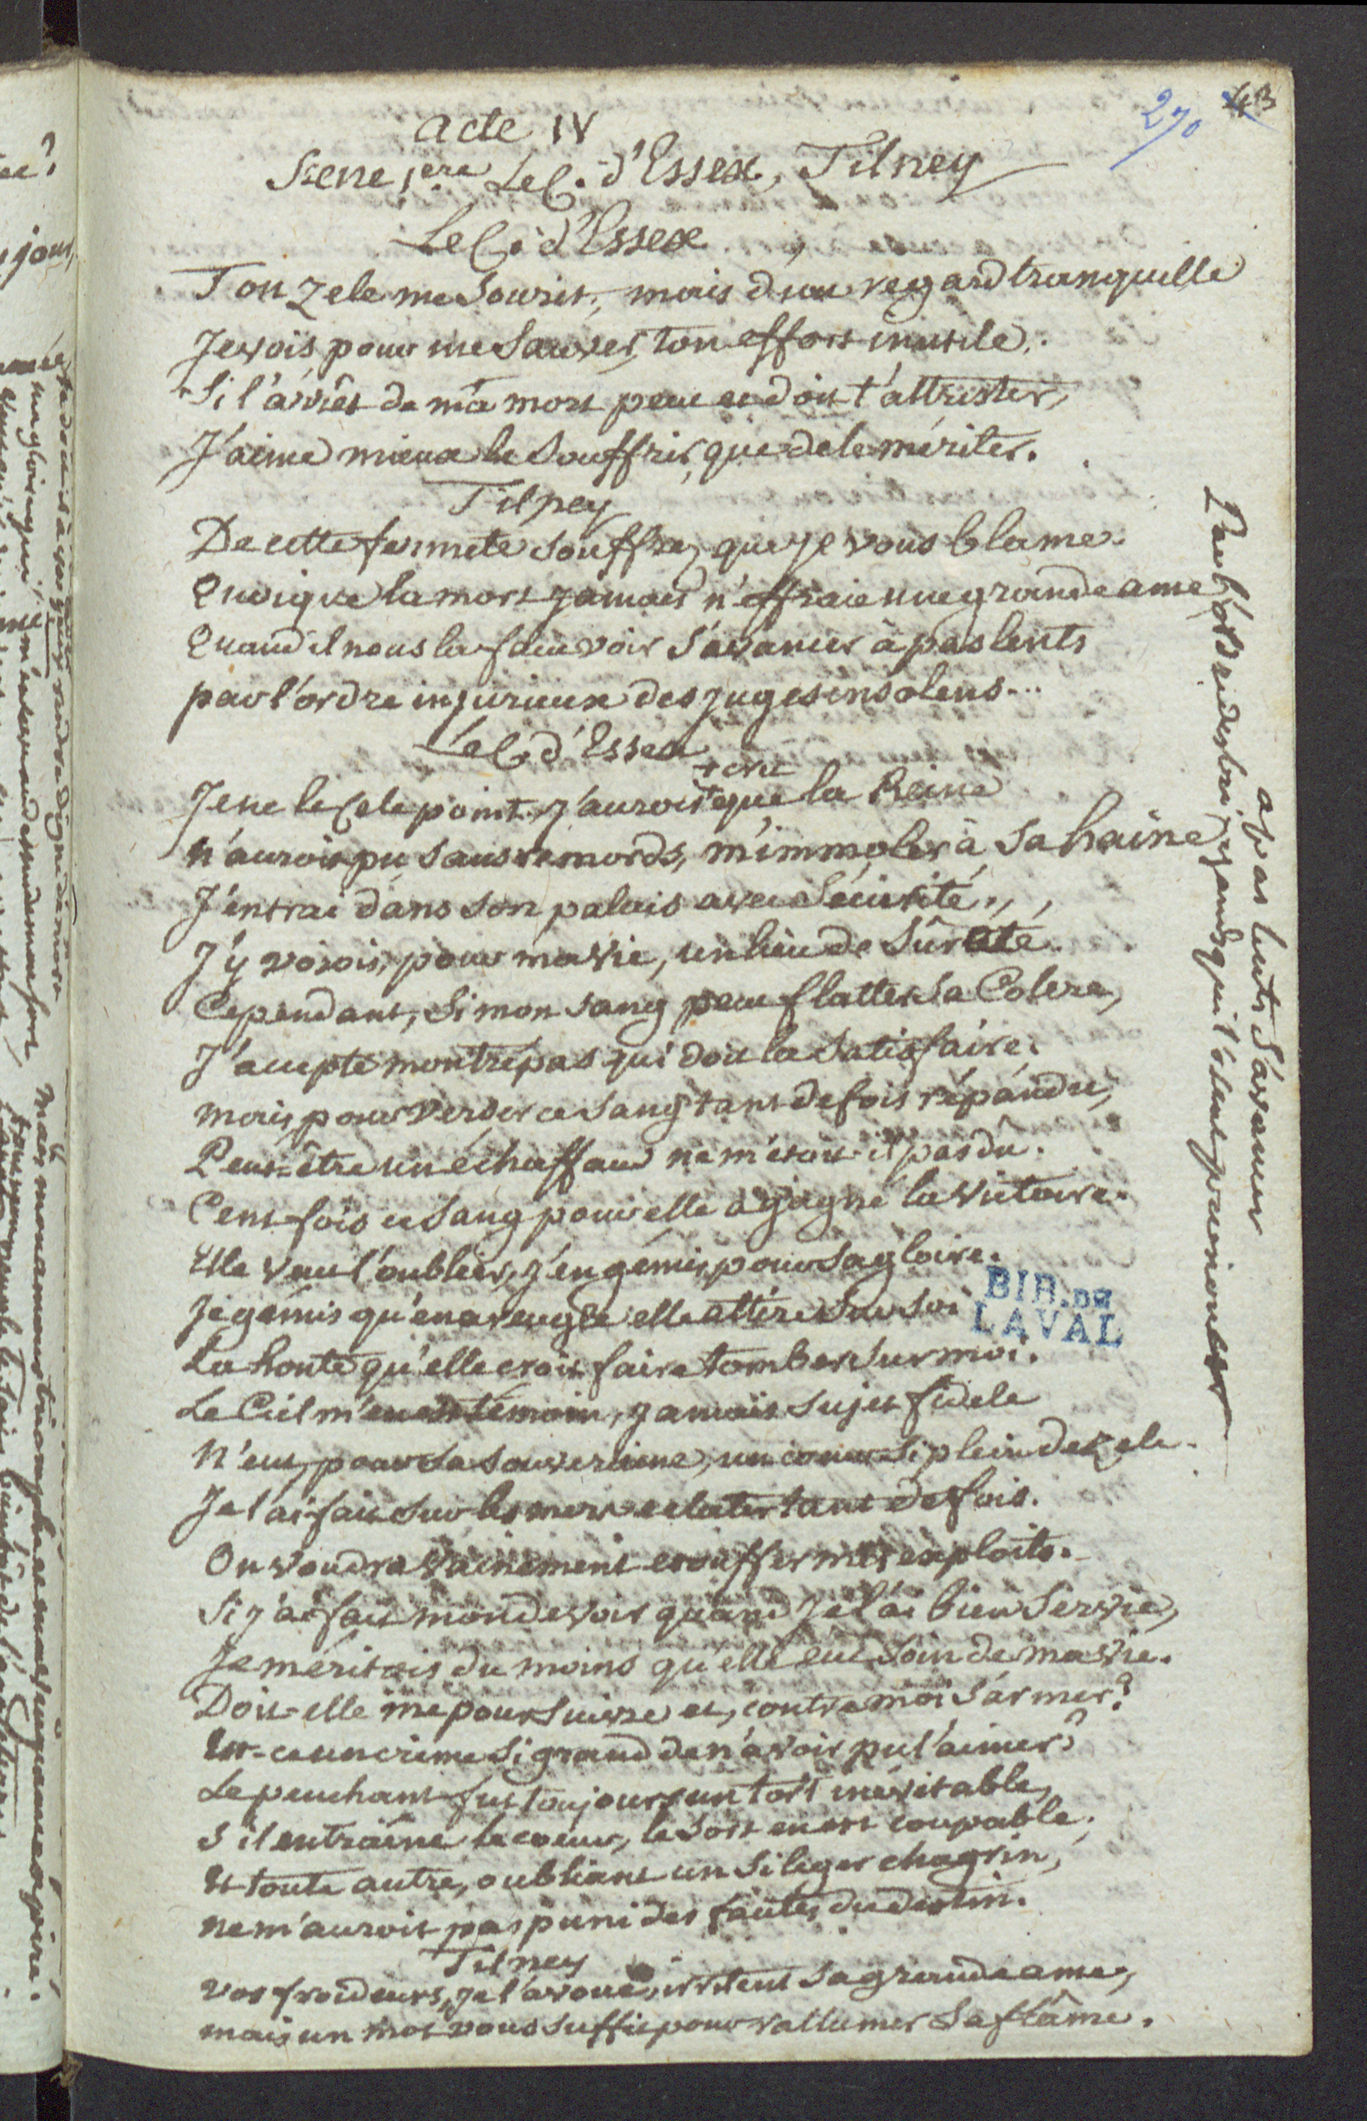 270 43
acte IV
Scene 1.ere Le C. d'Essex, Tilney
Le C. d'Essex
Ton zele me Sourit, mais d'un regard tranquille
Je vois pour me Sauver, ton effort inutile.
Si l'arrêt de ma mort peut et doit t'attrister,
J'aime mieux le Souffrir, que de le mériter.
Tilney
De cette fermeté souffrez que je vous blame.
Quoique la mort jamais n'effraie une grande ame
Quand il nous la faut voir S'avancer à pas lents
par l'ordre injurieux des juges insolens...
Le C. d'Essex
Je ne le Cele point. j'aurois + cru que la Reine
n'auroit pu sans remords, m'immoler à Sa haine
J'entrai dans son palais avec Sécurité.,
J'y voiois, pour ma vie, un lieu de Sûreté.
Cependant, Si mon sang peut flatter Sa Colere,
J'accepte mon trépas qui doit la Satisfaire.
mais pour verser ce Sang tant de fois répandu,
Peut-être un échaffaud ne m'étoit-il pas dû.
Cent fois ce Sang pour elle a gagné la victoire.
Elle veut l'oublier, j'en gémis, pour Sa gloire.
Je gémis qu'en aveugle elle attire Sur Soi
La honte qu'elle croit faire tomber Sur moi.
Le Ciel m'en est témoin, jamais Sujet fidele
N'eut, pour Sa Souveraine, un coeur Si plein de zele.
Je l'ai fait Sur les mers eclater tant de fois.
On voudra vainement etouffer mes exploits.
Si j'ai fait mon devoir quand je l'ai bien Servie,
Je méritois du moins qu'elle eut Soin de ma vie.
Doit-elle me poursuivre et, contre moi S'armer?
Est-ce un crime Si grand de n'avoir pu l'aimer?
Le penchant fut toujours un tort inévitable,
S'il entraîne le coeur, le Sort en est coupable.
Et toute autre, oubliant un Si leger chagrin,
ne m'auroit pas puni des fautes du destin.
Tilney
vos froideurs, je l'avoue, irritent Sa grande ame,
mais un mot vous Suffit pour rallumer Sa flâme.
Par l'ordre des
a pas lents S'avancer
BIB. DE
LAVAL